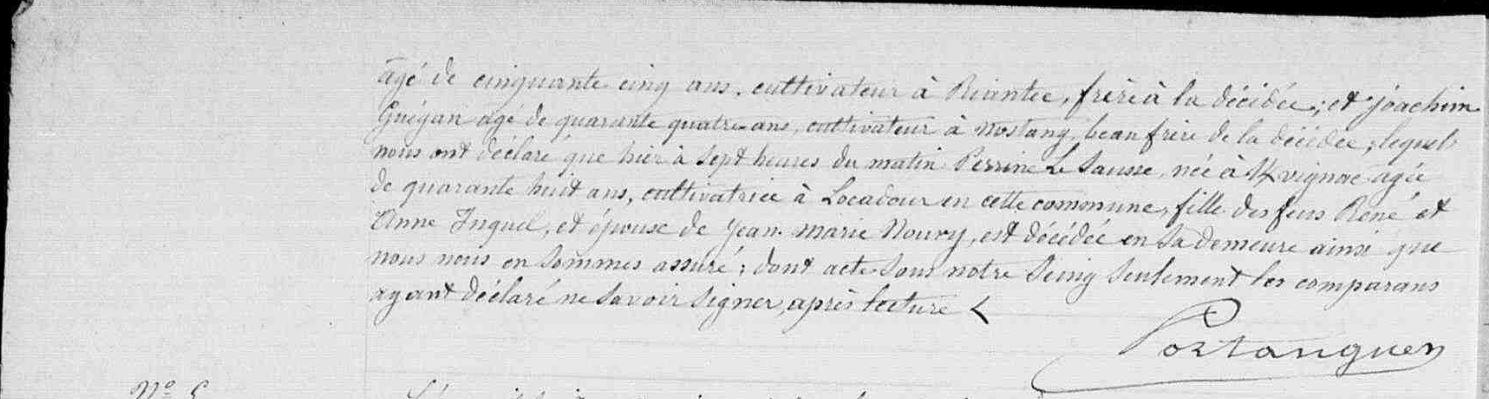 âgé de cinquante cinq ans, cultivateur à Riantec, frère à la décédée; et Joachim
Guégan agé de quarante quatre ans, cultivateur à Nostang, beau frère de la décédée; lequels
nous ont déclaré que hier à sept heures du matin Perrine Le Sausse, née à Kvignac agée
de quarante huit ans, cultivatrice à Locadour en cette commune, fille des feus René et
Anne Inquel, et épouse de Jean-marie Noury, est décédée en sa demeure ainsi que
nous nous en sommes assuré; dont acte sous notre seing seulement les comparans
ayant déclaré ne savoir signer, après lecture
Portanguen
Nº